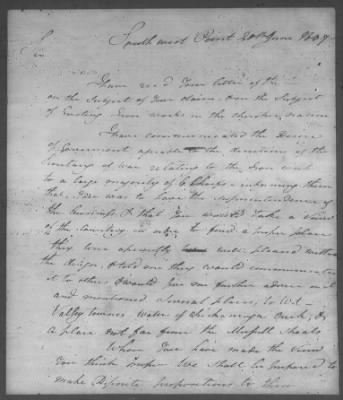 South west Point 20th June 1807
Sir
I have rec'd your letter of the
on the Subject of your claim, & on the Subject
of Erecting Iron works in the cherokee nation
I have communicated the Desire
of Government agreeable the direction of the
Secretary of War relating to the Iron works
to a large majority of Chiefs & informing them
that you was to have the superintendence of
the business, & that you would take a view
of the Country in order to find a proper place
they were apparently well pleased with
the design, & told me they would communicate
it to others & would give me further advice on it
and mentioned several places, to wit -
Valley towns waters of chickamaga creek, &
a place not far from the Mussell Shoals
When you have made the view
you think proper We shall be prepared to
make Definite propositions to them